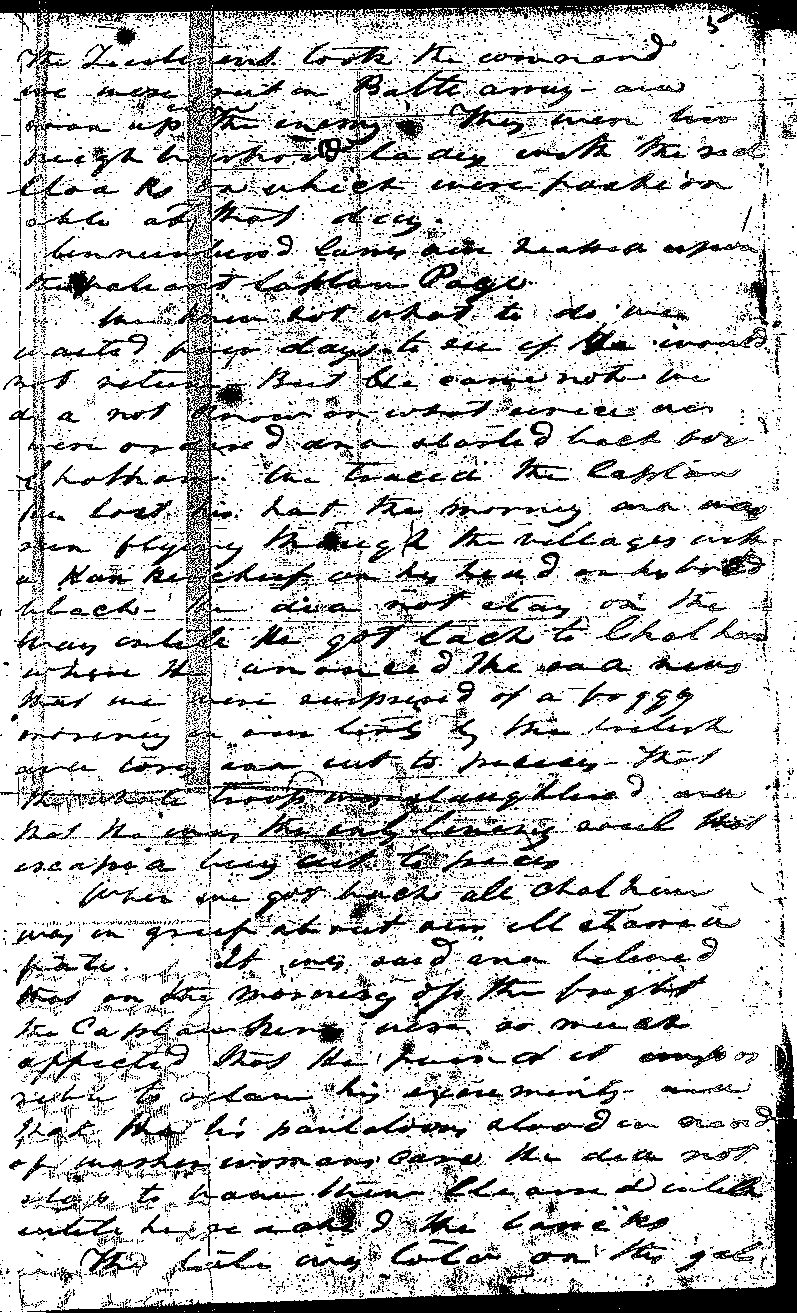 5
The Lieutenant took the command
we were put in Battle array - and
soon up the enemy. They were two
neigh bourhood ladys with the red
Cloa ks on which were fashion
able at that day.
we knew not what to do we
waited four days to see if He would
not return But He came not we
did not know on what service we
were ordered and started back for
Chatham. We traced the Captain
he lost his hat the morning and was
seen flying through the villages with
a Han kerchief on his head on his
black - He did not stay on the
way untill He got back to Chatham
where He anonced the sad news
that we were surprised of a foggy
morning in our by the british
and torys and cut to pieces - that
the whole troop was slaughtered and
that he was the only liveing soul that
escaped being cut to pieces
When we got back all Chatham
was in grief about our ill starred
fate. It was said and believed
that on the morning of the fright
the Captain was so much
affected that He found it impos
sible to retain his excrements and
that his pantaloons stood in need
of washer womans care He did not
stop to have them Cleansed untill
untill he reached the
The tale was told on the gal